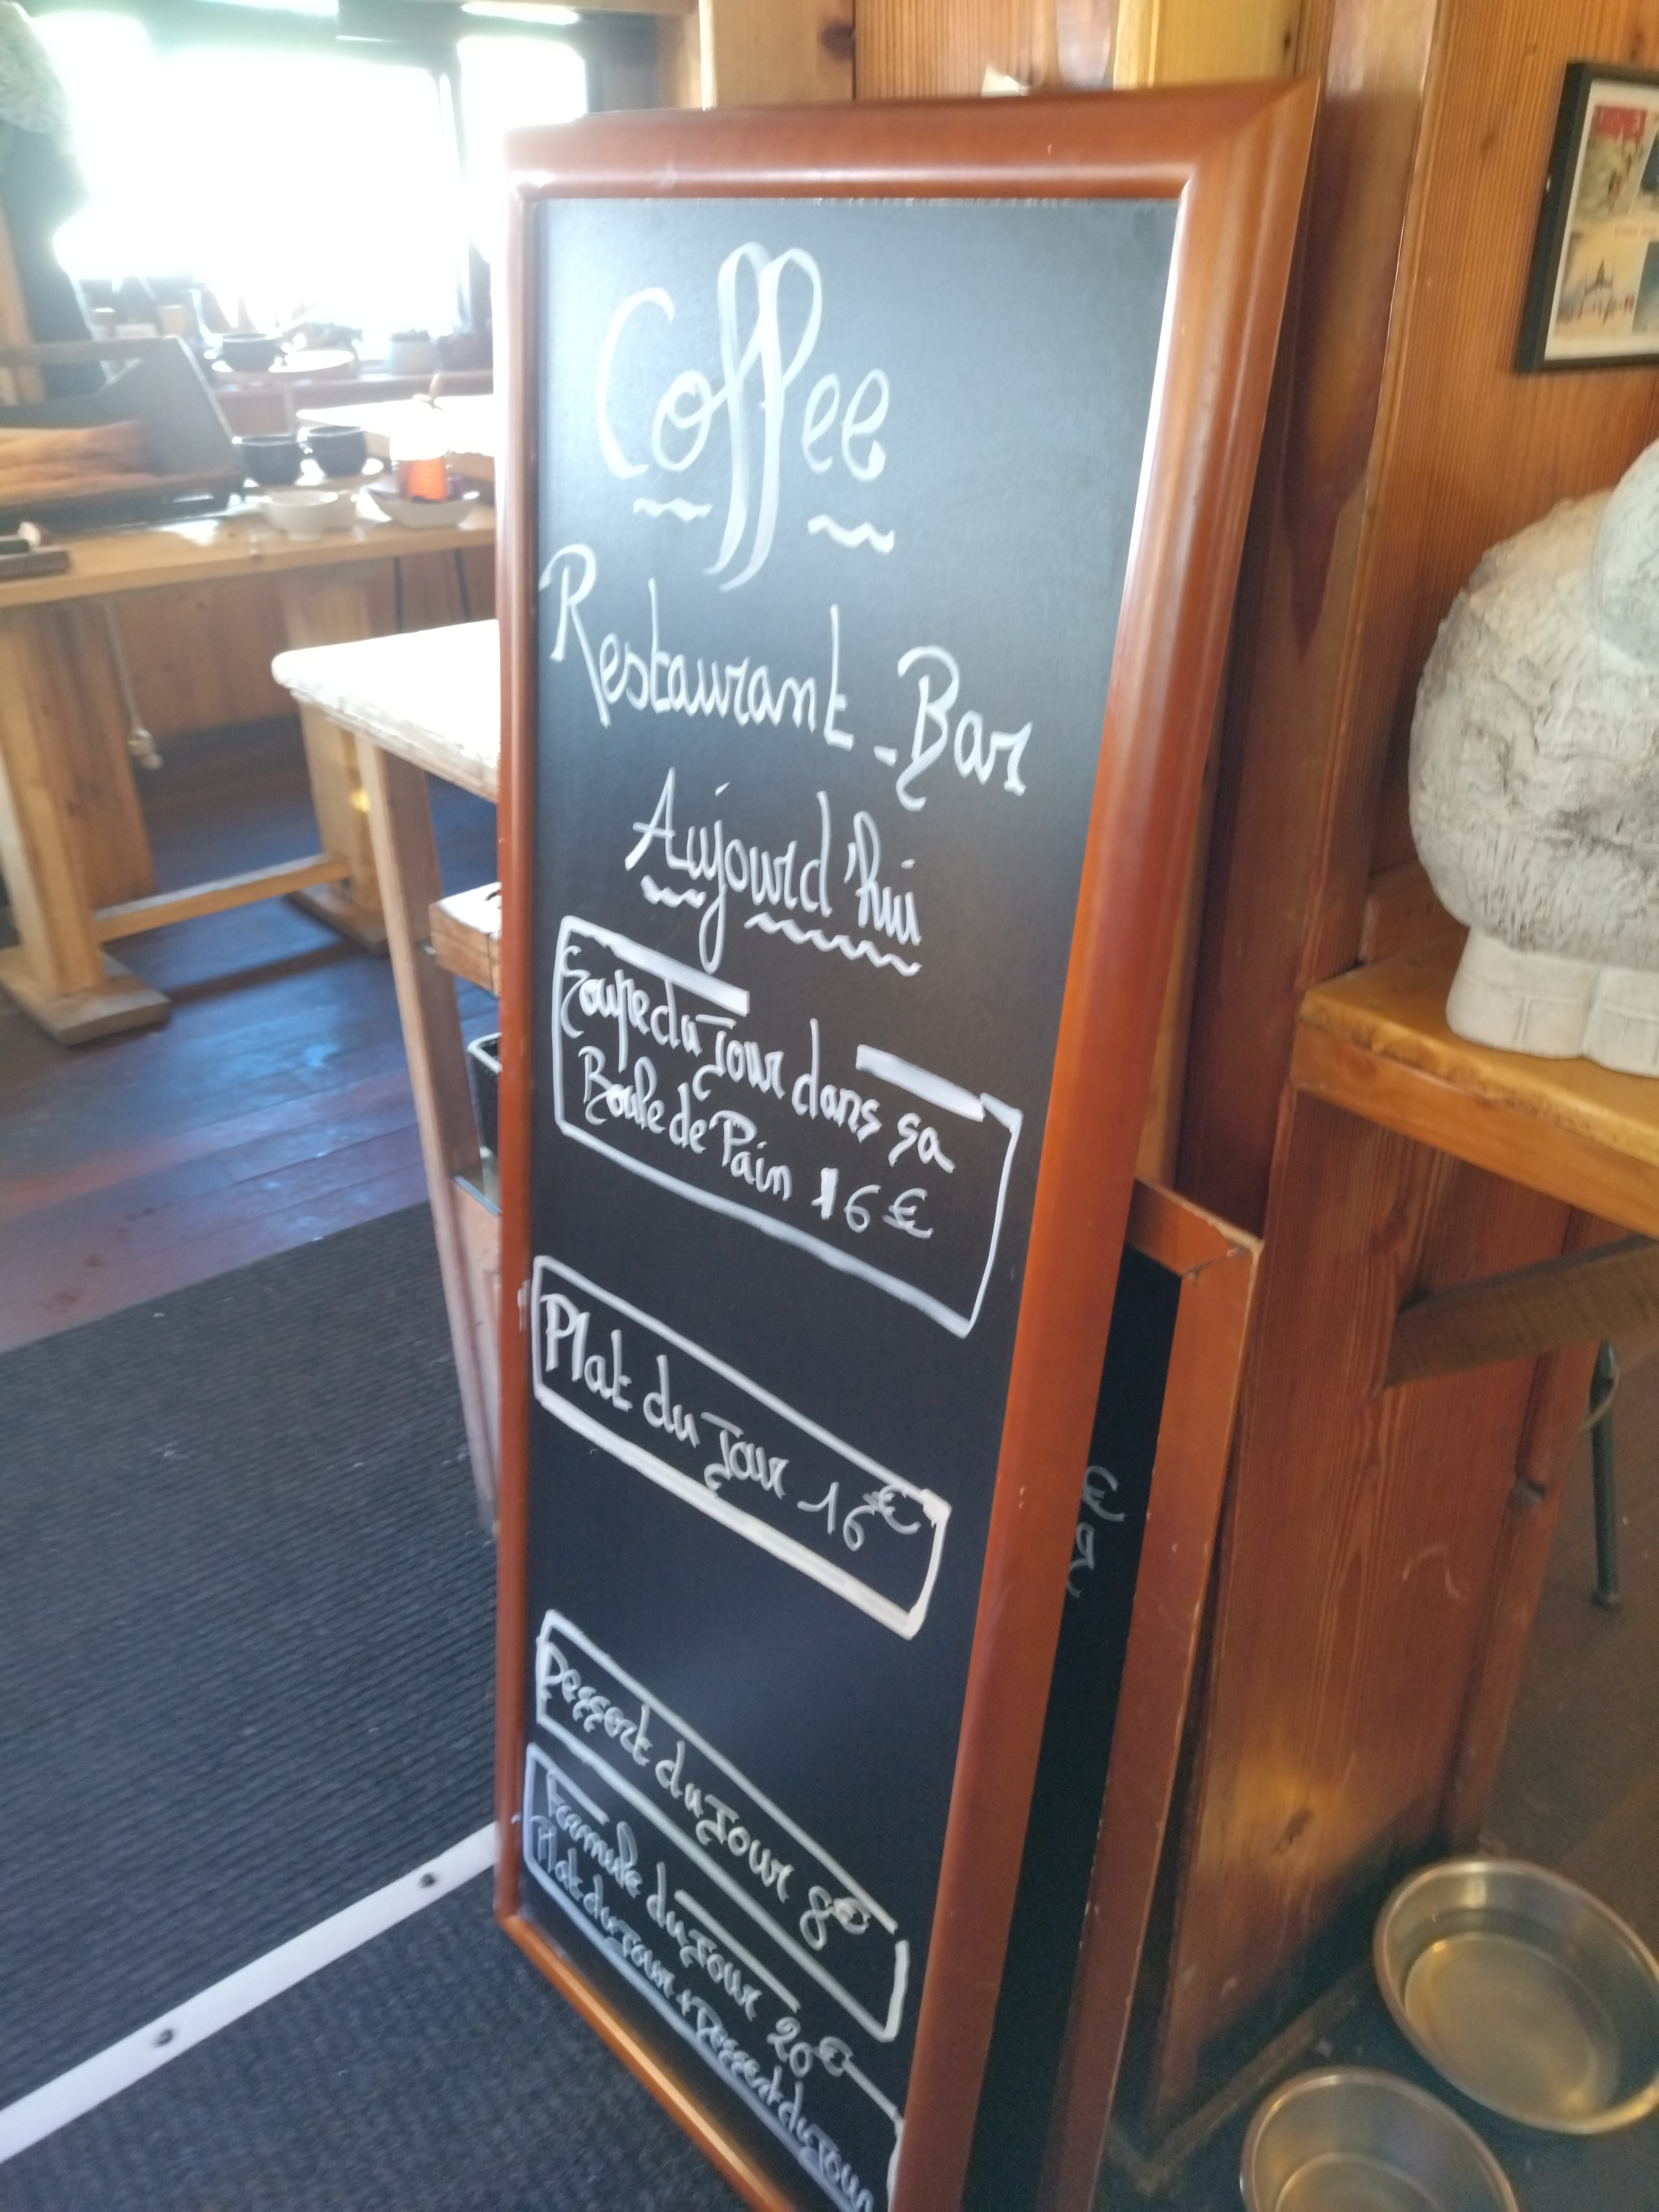 Coffee
Restaurant - Bar
Aujourd'hui
Soupe du Jour dans sa
Boule de Pain 16 €
Plat du Jour 16 €
Dessert du Jour 8 €
Formule du Jour 20 €
Plat du Jour + Dessert du Jour